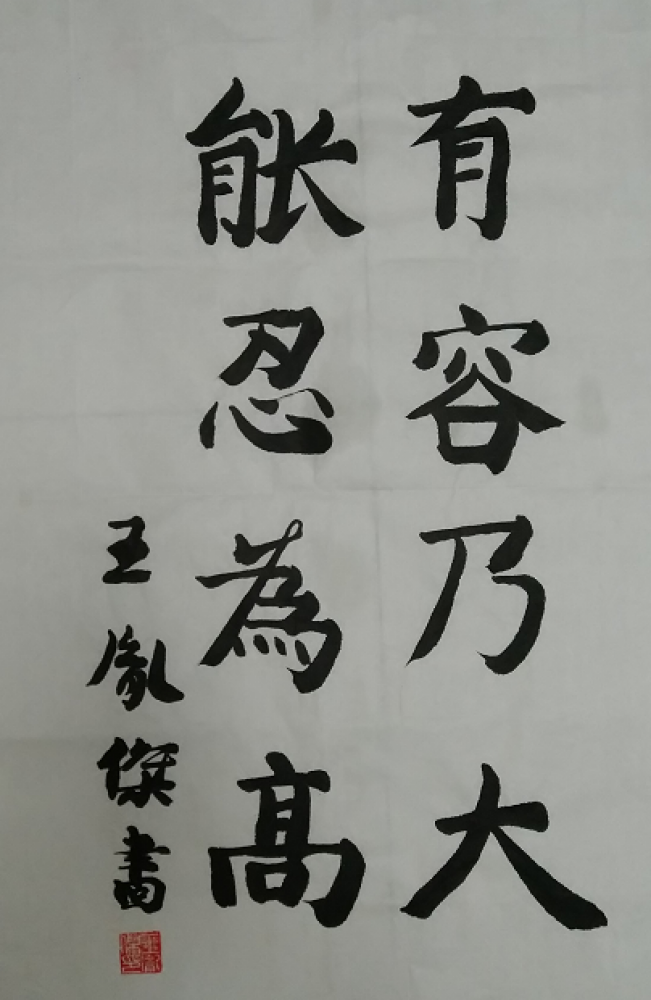 有容乃大
能忍為高
王胤傑書